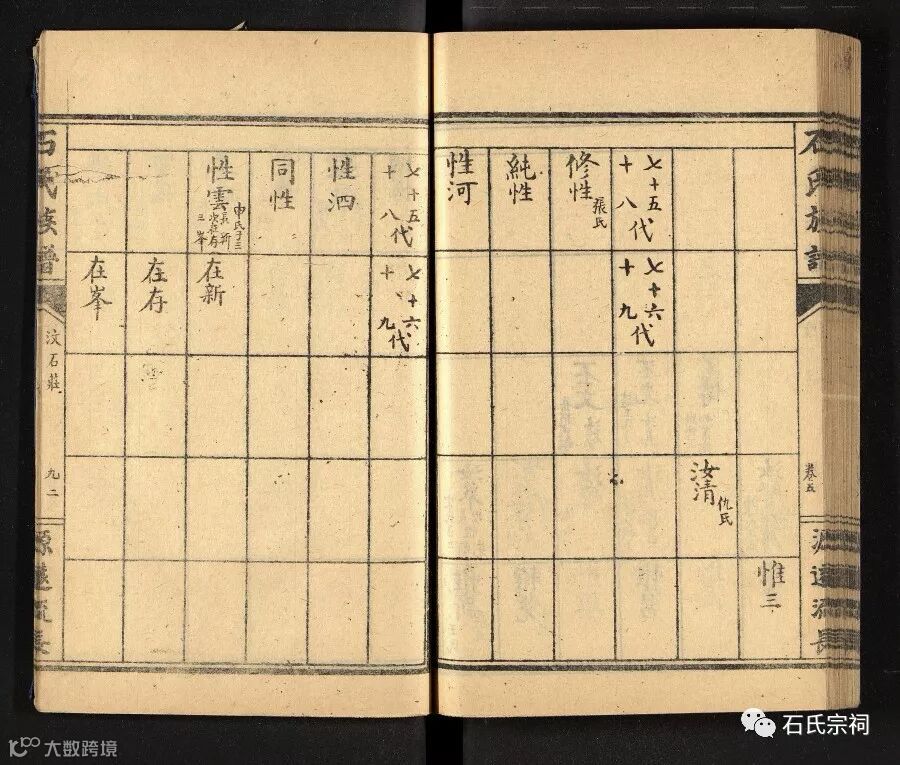 石氏族譜
卷五
源遠流長
惟三
汝清 仇氏
七十五代
十八
七十六代
十九
修性 張氏
純性
性河
七十五代
十八
七十六代
十九
性泗
同性
性雲 申氏子三
長在新
次在存
三峯
在新
在存
在峯
石氏族譜
汶石莊
九二
源遠流長
石氏宗祠
大数跨境